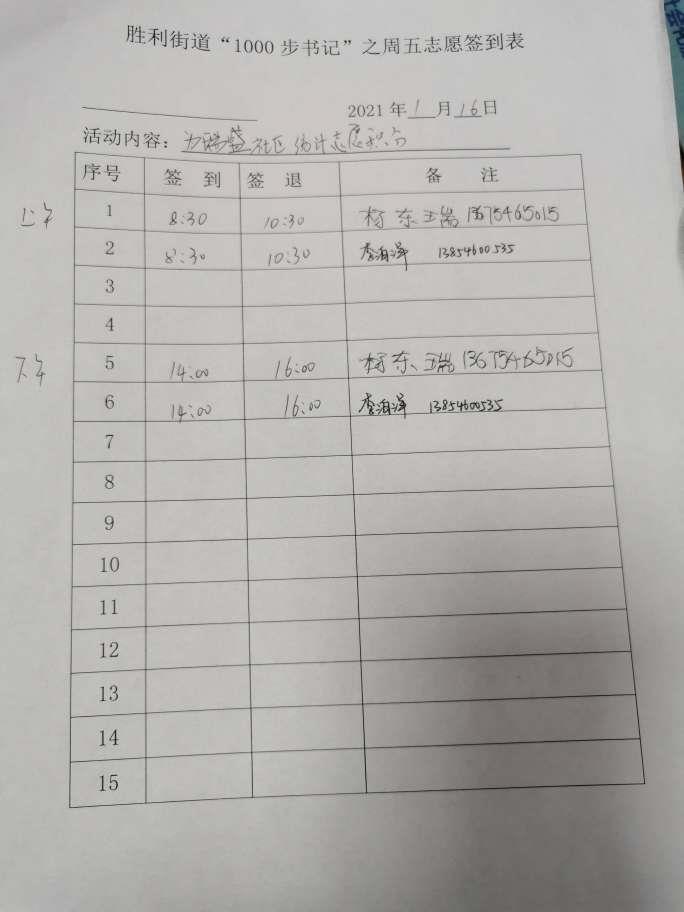 胜利街道“1000 步书记”之周五志愿签到表
2021 年 1 月 16 日
活动内容：为瑞盛社区统计志愿积分
序号 签 到 签 退 备 注
上午 1 8:30 10:30 杨东、王瑞 13675465015
2 8:30 10:30 李海泽 13854600535
3
4
下午 5 14:00 16:00 杨东、王瑞 13675465015
6 14:00 16:00 李海泽 13854600535
7
8
9
10
11
12
13
14
15